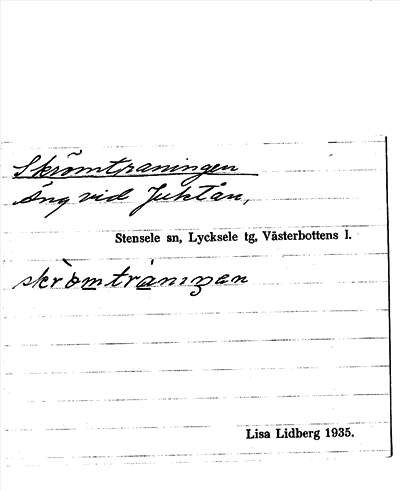 Skrömtraningen
Äng vid Juktån,
Stensele sn, Lycksele tg, Västerbottens l.
skròmtrániŋan
Lisa Lidberg 1935.